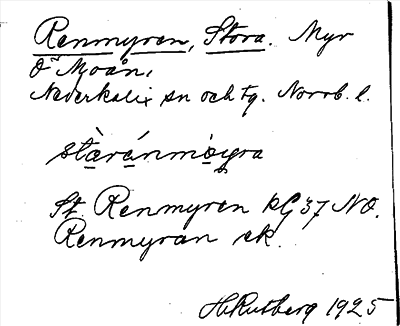 Renmyren, Stora. Myr
Ö Moån,
Nederkalix sn och tg. Norrb. l.
stæ̀ránmỳra
St. Renmyren kG 37 NO.
Renmyran ek.
H. Rutberg 1925